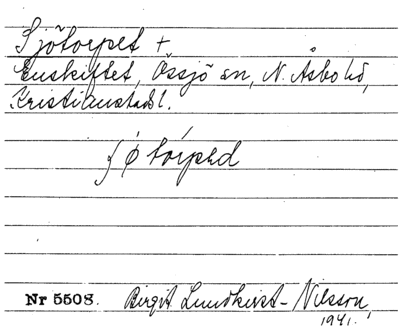 Sjötorpet +
Enskiftet, Össjö sn, N. Åsbo hd,
Kristianstads l.
ʃǿ tòrpəd
Nr 5508. Birgit Lundkvist-Nilsson,
1941.